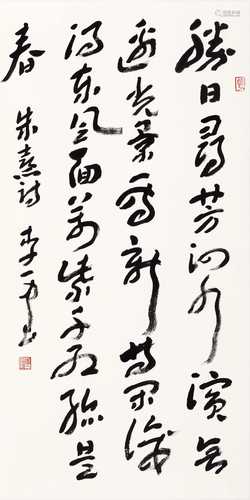 勝日尋芳泗水濱無
邊光景一時新等閒識
得東風面萬紫千紅總是
春 朱熹詩 李一